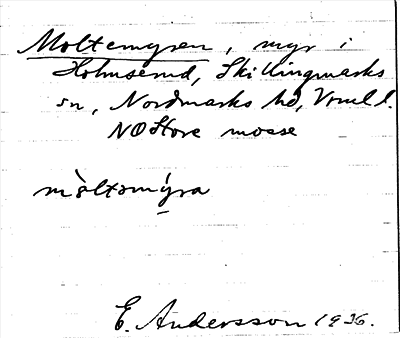 Moltemyren, myr i
Holmserud, Skillingmarks
sn, Nordmarks hd, Vrml l.
NO Store mosse
mòltəmýra
E. Andersson 1936.